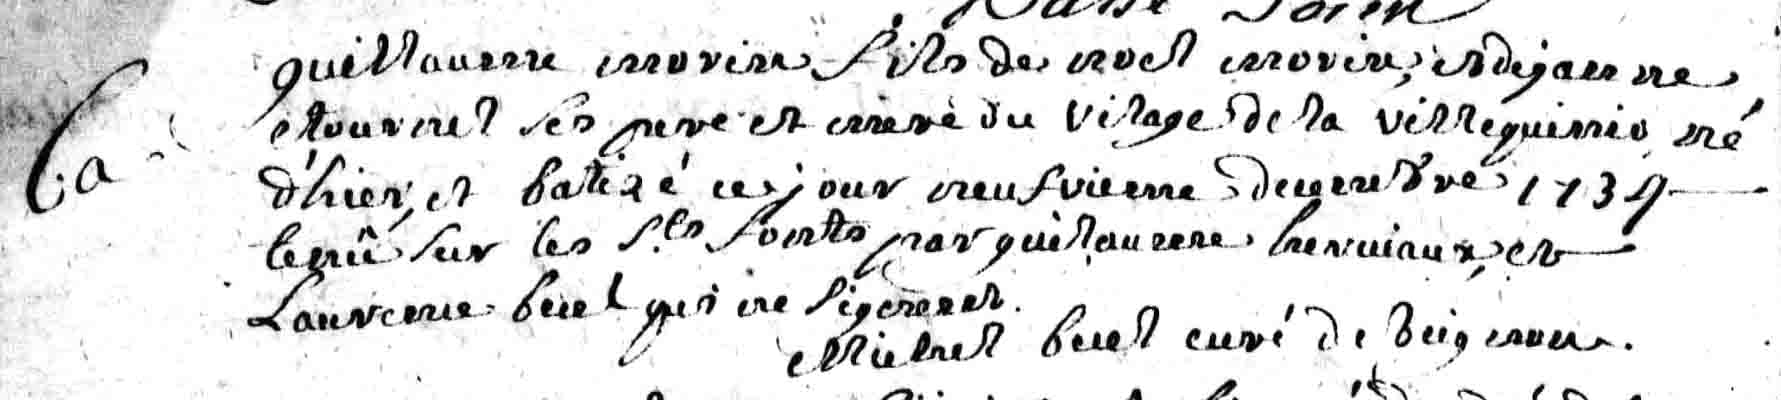 Ba
guillaume morin fils de noel morin, et de jeanne
etournel ses pere et mere du vilage de la villeguinio, né
d'hier, et batizé ce jour neufvieme decembre 1734
tenû sur les s.ts fonts par guillaume herviaux, et
Laurence buel qui ne signent.
Michel buel curé de beignon.